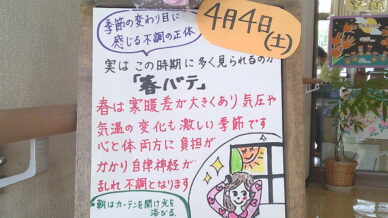 季節の変わり目に
感じる不調の正体
4月4日(土)
実はこの時期に多く見られるのが
「春バテ」
春は寒暖差が大きくあり気圧や
気温の変化も激しい季節です
心と体両方に負担が
かかり自律神経が
乱れ不調となります
朝はカーテンを開け光を
浴びる。